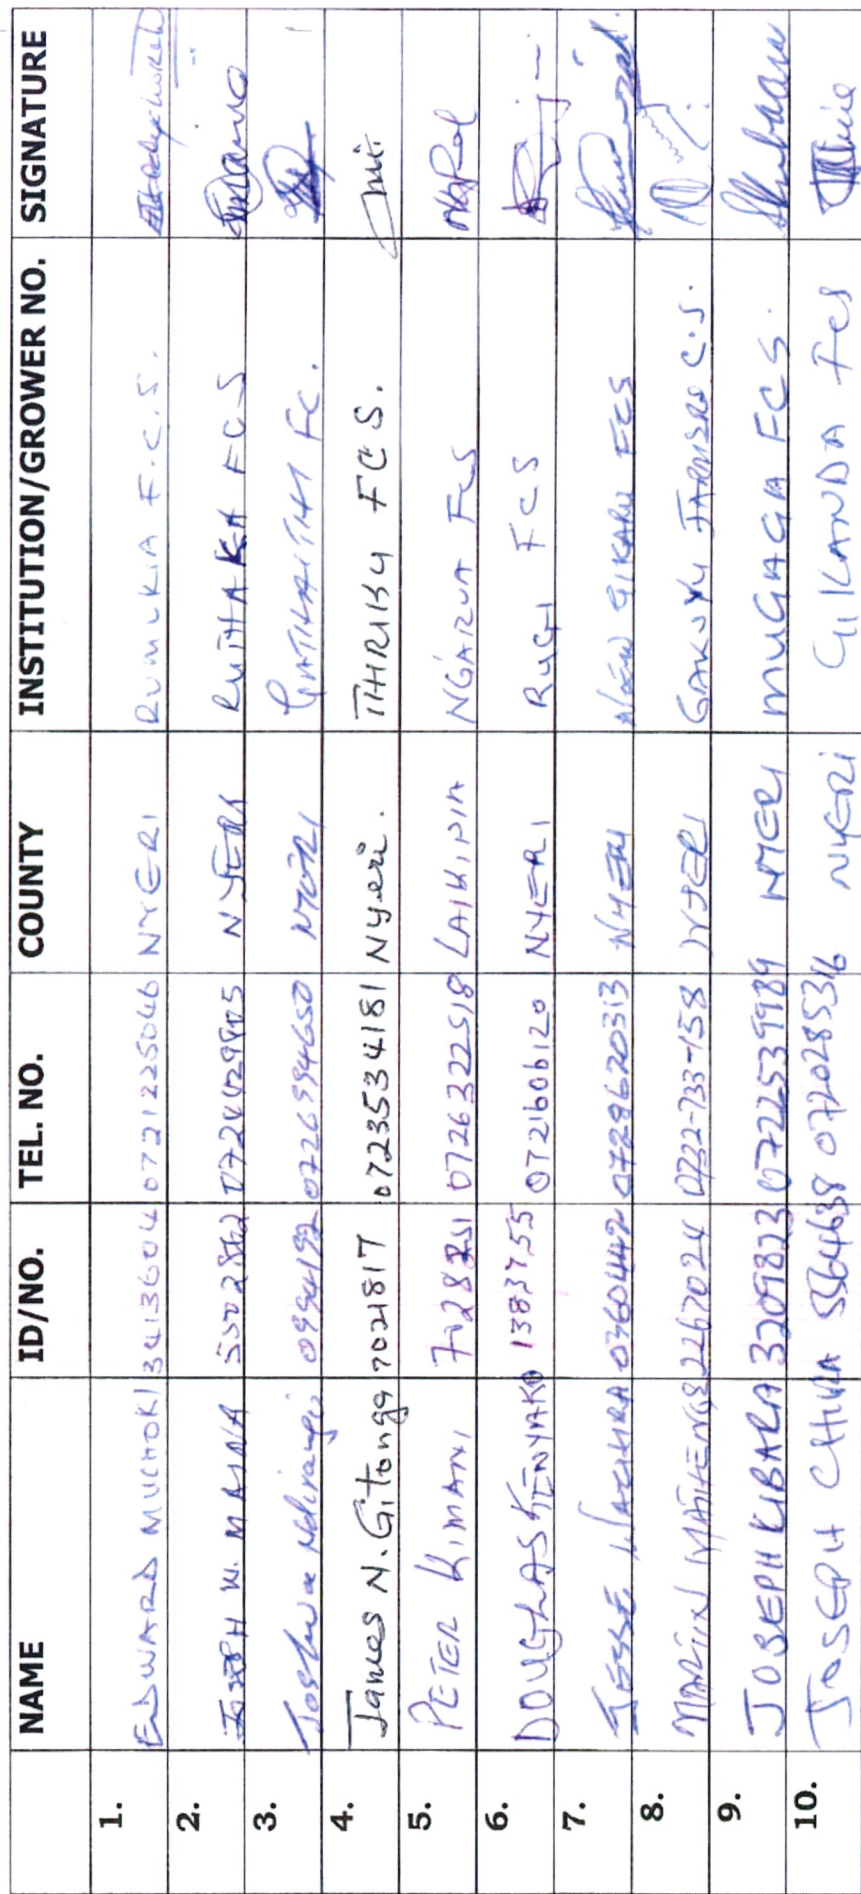 NAME ID/NO. TEL. NO. COUNTY INSTITUTION/GROWER NO. SIGNATURE
1. EDWARD MUCHOKI 3413604 0721225046 NYERI RUMUKIA F.C.S.
2. JOSEPH W. MAINA NYERI RUTHAKA FCS
3. Joshua Ndirangu 0726994650 NYERI GATHAITHI FC.
4. James N. Gitonga 7021817 0723534181 Nyeri. THIRIKU FCS.
5. PETER KIMANI 0726322518 LAIKIPIA NGARUA FCS
6. DOUGLAS 1383755 0721606120 NYERI RUGI FCS
7. JESSE WACHIRA 0360442 0728620313 NYERI NEW GIKARU FCS
8. MARTIN MATHENGE 2267024 0722-733-158 NYERI GAKUYU FARMERS C.S.
9. JOSEPH KIBARA 3209823 0722539989 NYERI MUGAGA FCS.
10. JOSEPH CHURA 5564638 0720285316 NYERI GIKANDA FCS